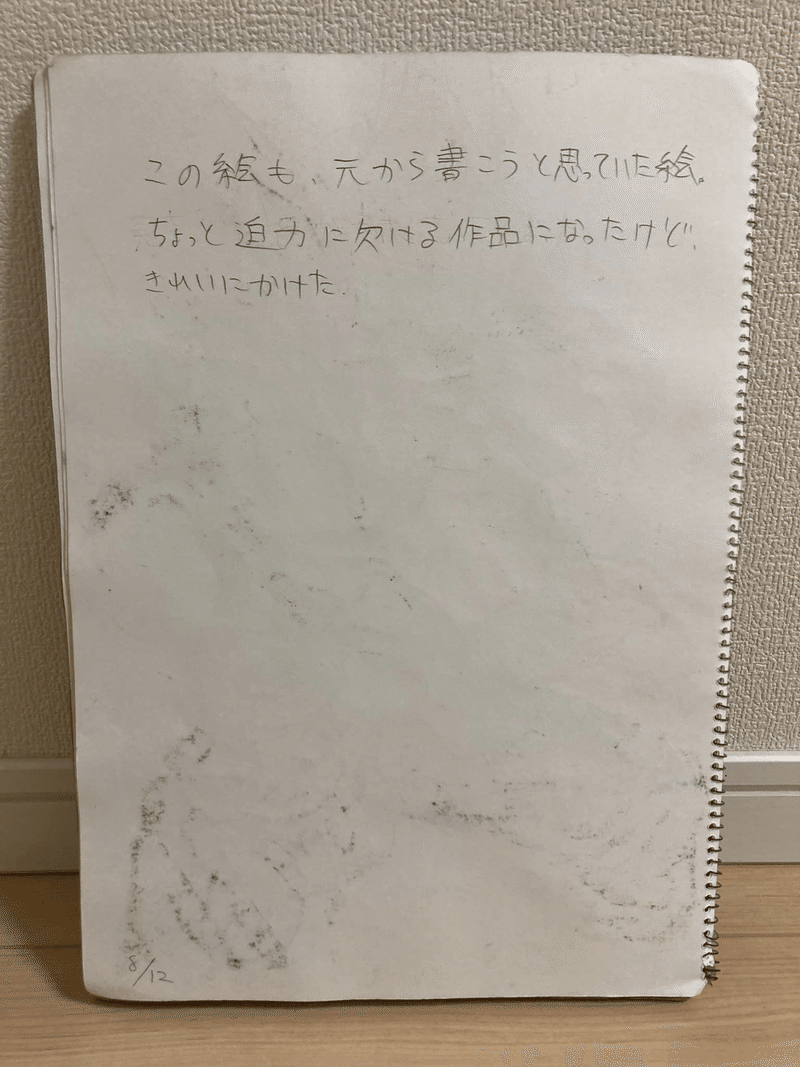 この絵も、元から書こうと思っていた絵。
ちょっと迫力に欠ける作品になったけど、
きれいにかけた.
8/12